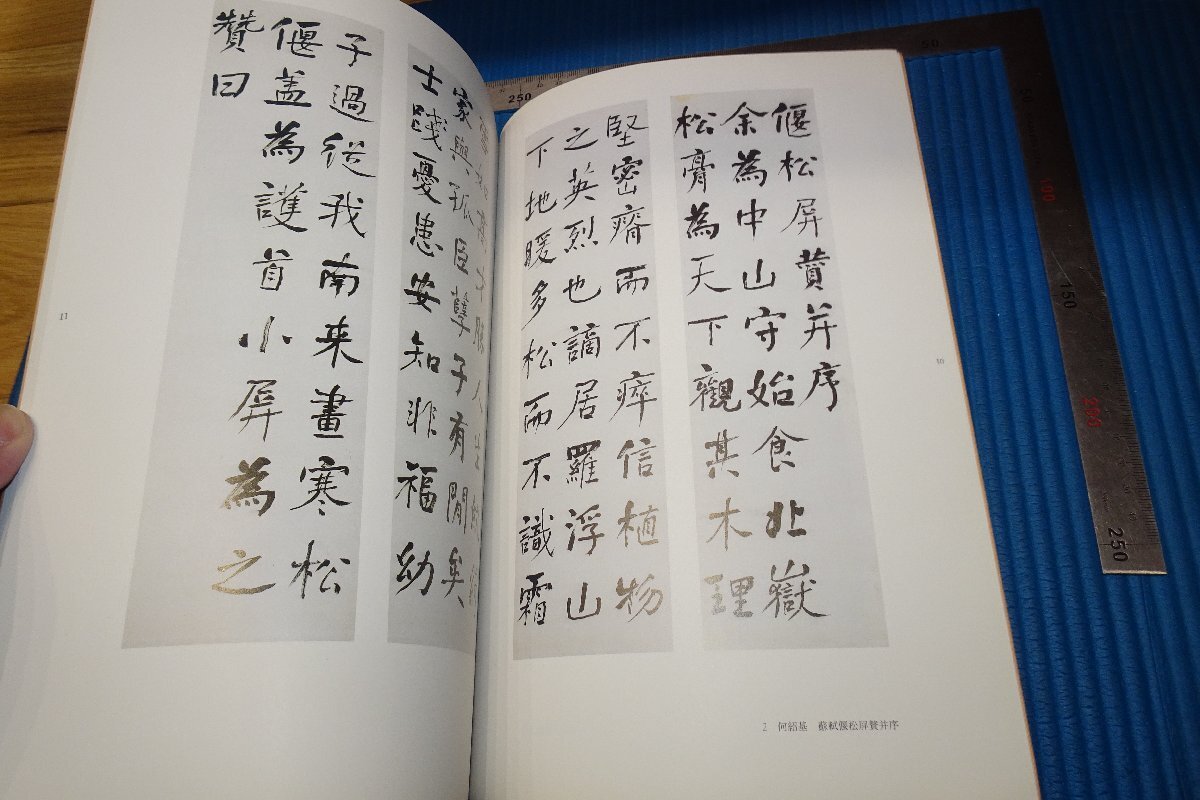 偃松屏賛并序
余為中山守始食北嶽
松膏為天下觀其木理
堅密瘠而不瘁信植物
之英烈也謫居羅浮山
下地暖多松而不識霜
家與孤臣孽子有間矣
士踐憂患安知非福幼
子過從我南来畫寒松
偃盖為護首小屏為之
賛曰
2 何紹基 蘇軾偃松屏賛并序
10
11
250
50
100
150
200
250